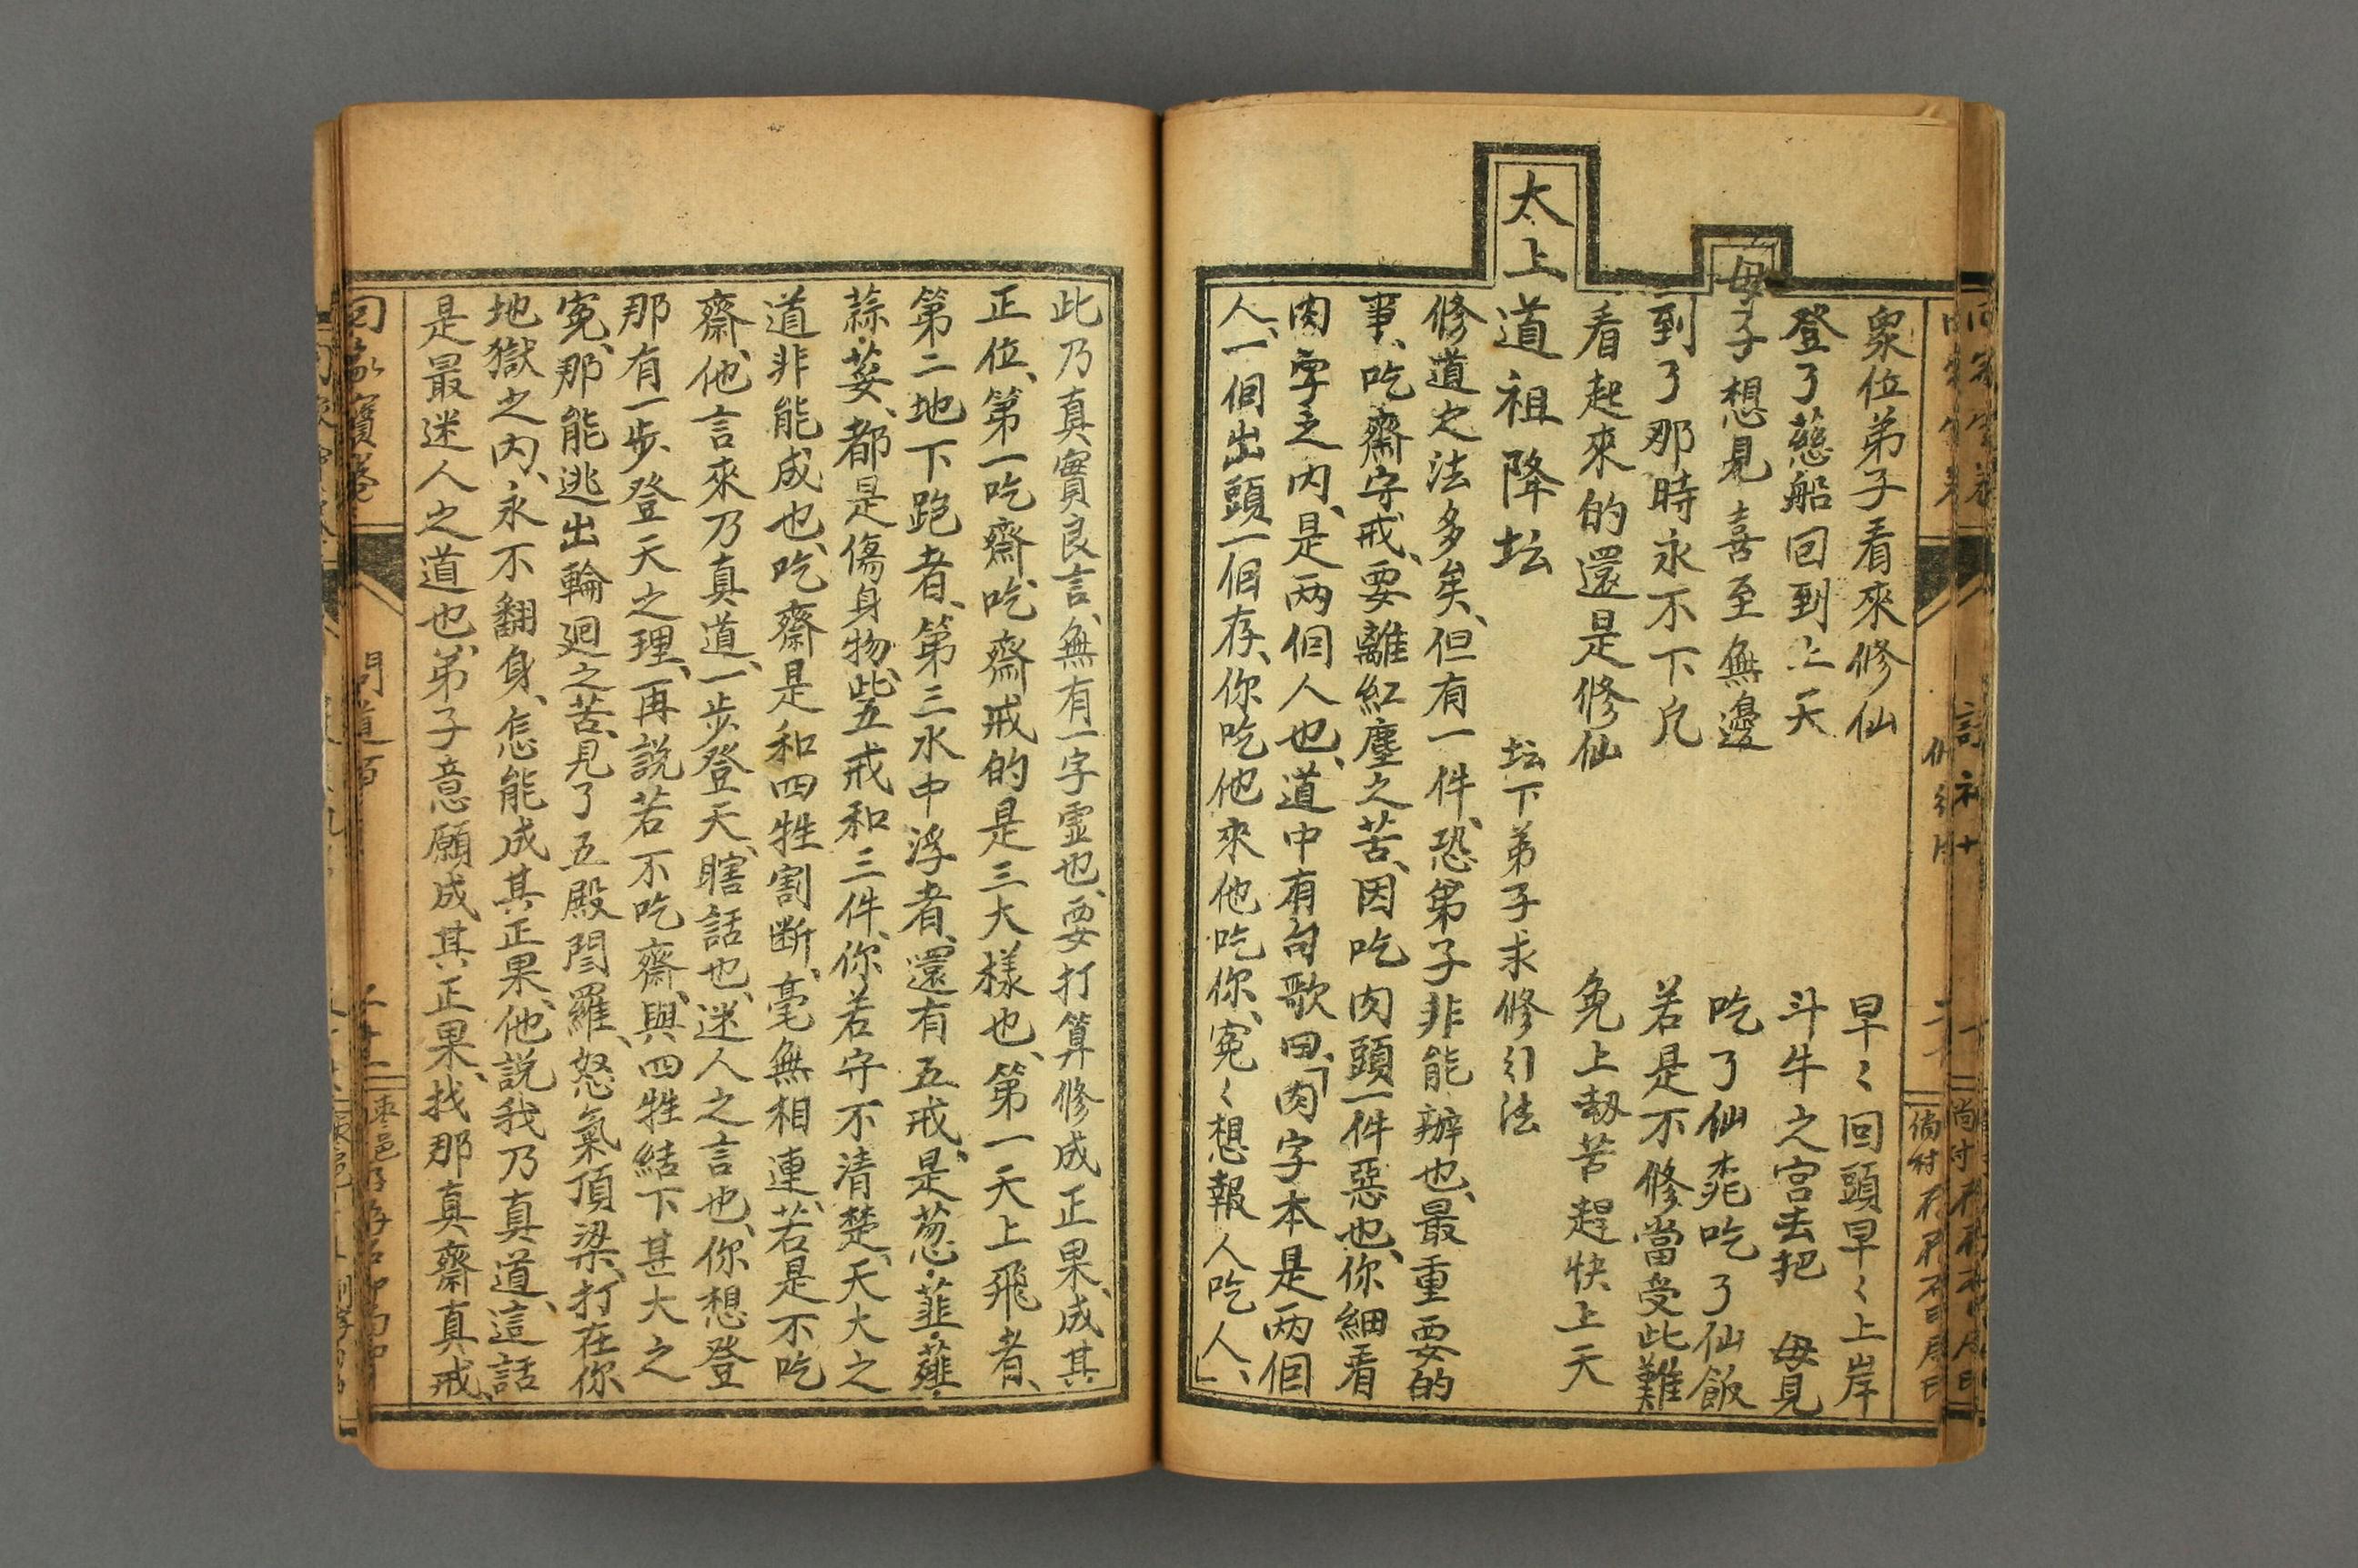 衆位弟子看來修仙　早〻回頭早〻上岸
登了慈船回到上天　斗牛之宮去把　母見
母子想見喜至無邊　吃了仙桃吃了仙飯
到了那時永不下凡　若是不修當受此難
看起來的還是修仙　免上刼苦趕快上天
太上道祖降坛　坛下弟子求修引法
修道之法多矣、但有一件、恐弟子非能辦也、最重要的
事、吃齋守戒、要離紅塵之苦、因吃肉頭一件惡也、你細看
肉字之内、是两個人也、道中有句歌曰、「肉字本是两個
人、一個出頭一個存、你吃他來他吃你、寃〻想報人吃人、」
此乃真實良言、無有一字虚也、要打算修成正果、成其
正位、第一吃齋、吃齋戒的是三大樣也、第一天上飛者、
第二地下跑者、第三水中浮者、還有五戒、是葱·韮·薤·
蒜·荽、都是傷身物、此五戒和三件、你若守不清楚、天大之
道非能成也、吃齋是和四牲割断、毫無相連、若是不吃
齋、他言來乃真道、一步登天、瞎話也、迷人之言也、你想登
那有一步登天之理、再説若不吃齋、與四牲結下甚大之
寃、那能逃出輪廻之苦、見了五殿閻羅、怒氣頂梁、打在你
地獄之内、永不翻身、怎能成其正果、他説我乃真道、這話
是最迷人之道也、弟子意願成其正果、找那真齋真戒、
囘家寳卷　問道